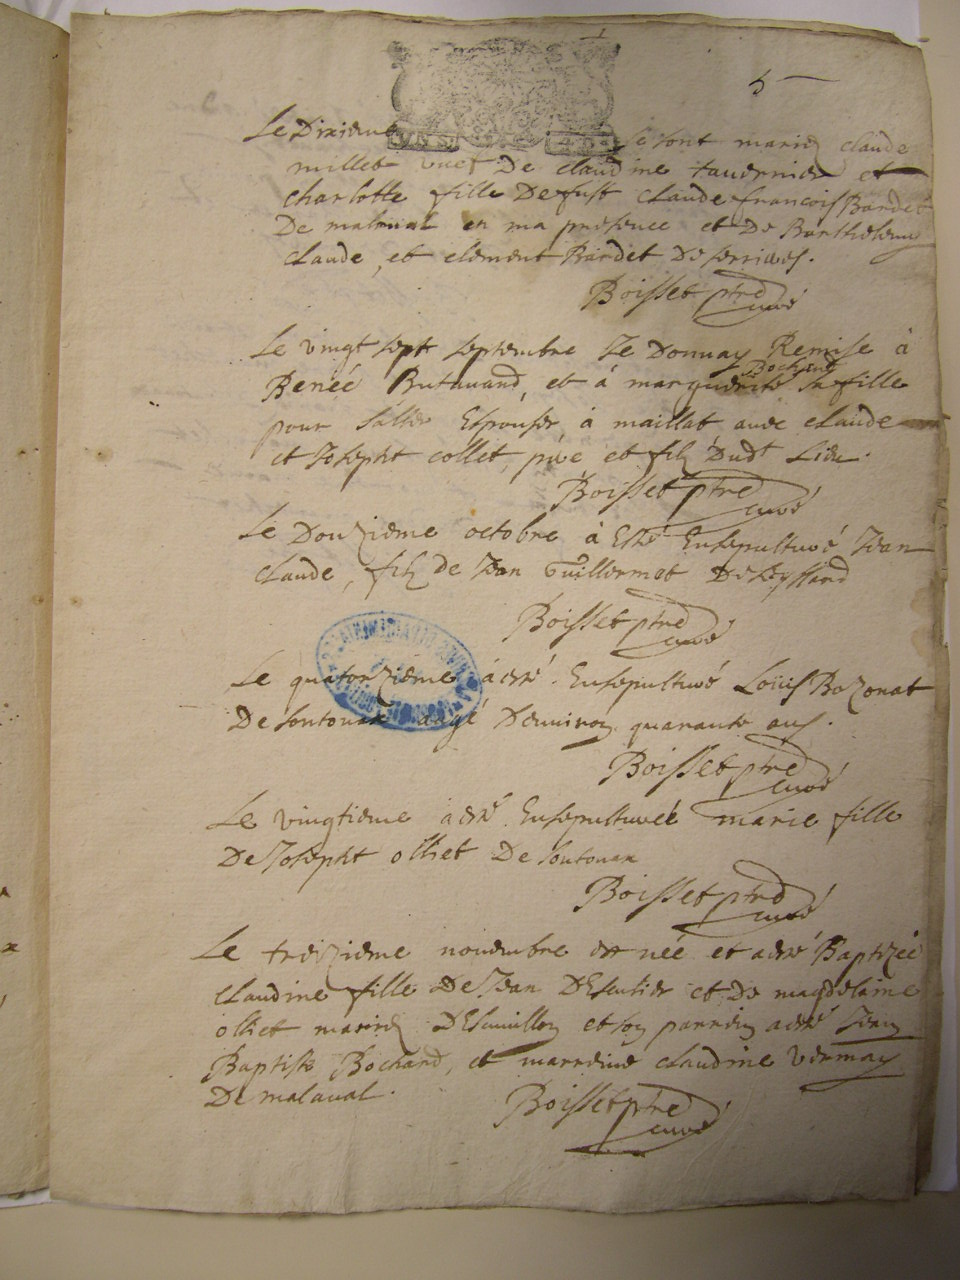 5
Le Dixieme se sont mariez claude
millet vuef De claudine tavernier et
charlotte fille De fust claude francois Bardet
De malaval en ma presence et De Barthelemy
claude, et clement Bardet De serrieres.
Boisset ptre curé
Le vingt sept septembre Je Donnay Remise à
Bochard
Renée Butavand, et à marguerite sa fille
pour saller Espouser à maillat avec claude
et Joseph collet, pere et filz Dudt Lieu.
Boisset ptre curé
Le Douzieme octobre à Esté Ensepulturé Jean
claude, filz de Jean Guillermet De Leyssard
Boisset ptre curé
Le quatorzieme à esté Ensepulturé Loüis Bozonat
De soutouan aagé D'environ quarante ans.
Boisset ptre curé
Le vingtieme à esté Ensepulturéé marie fille
De Joseph olliet De soutouan
Boisset ptre curé
Le treizieme novembre est née et à esté Baptizéé
claudine fille De Jean et De magdelaine
olliet mariez et son parrein a esté Jean
Baptiste Bochard, et marreine claudine vernay
De malaval.
Boisset ptre curé